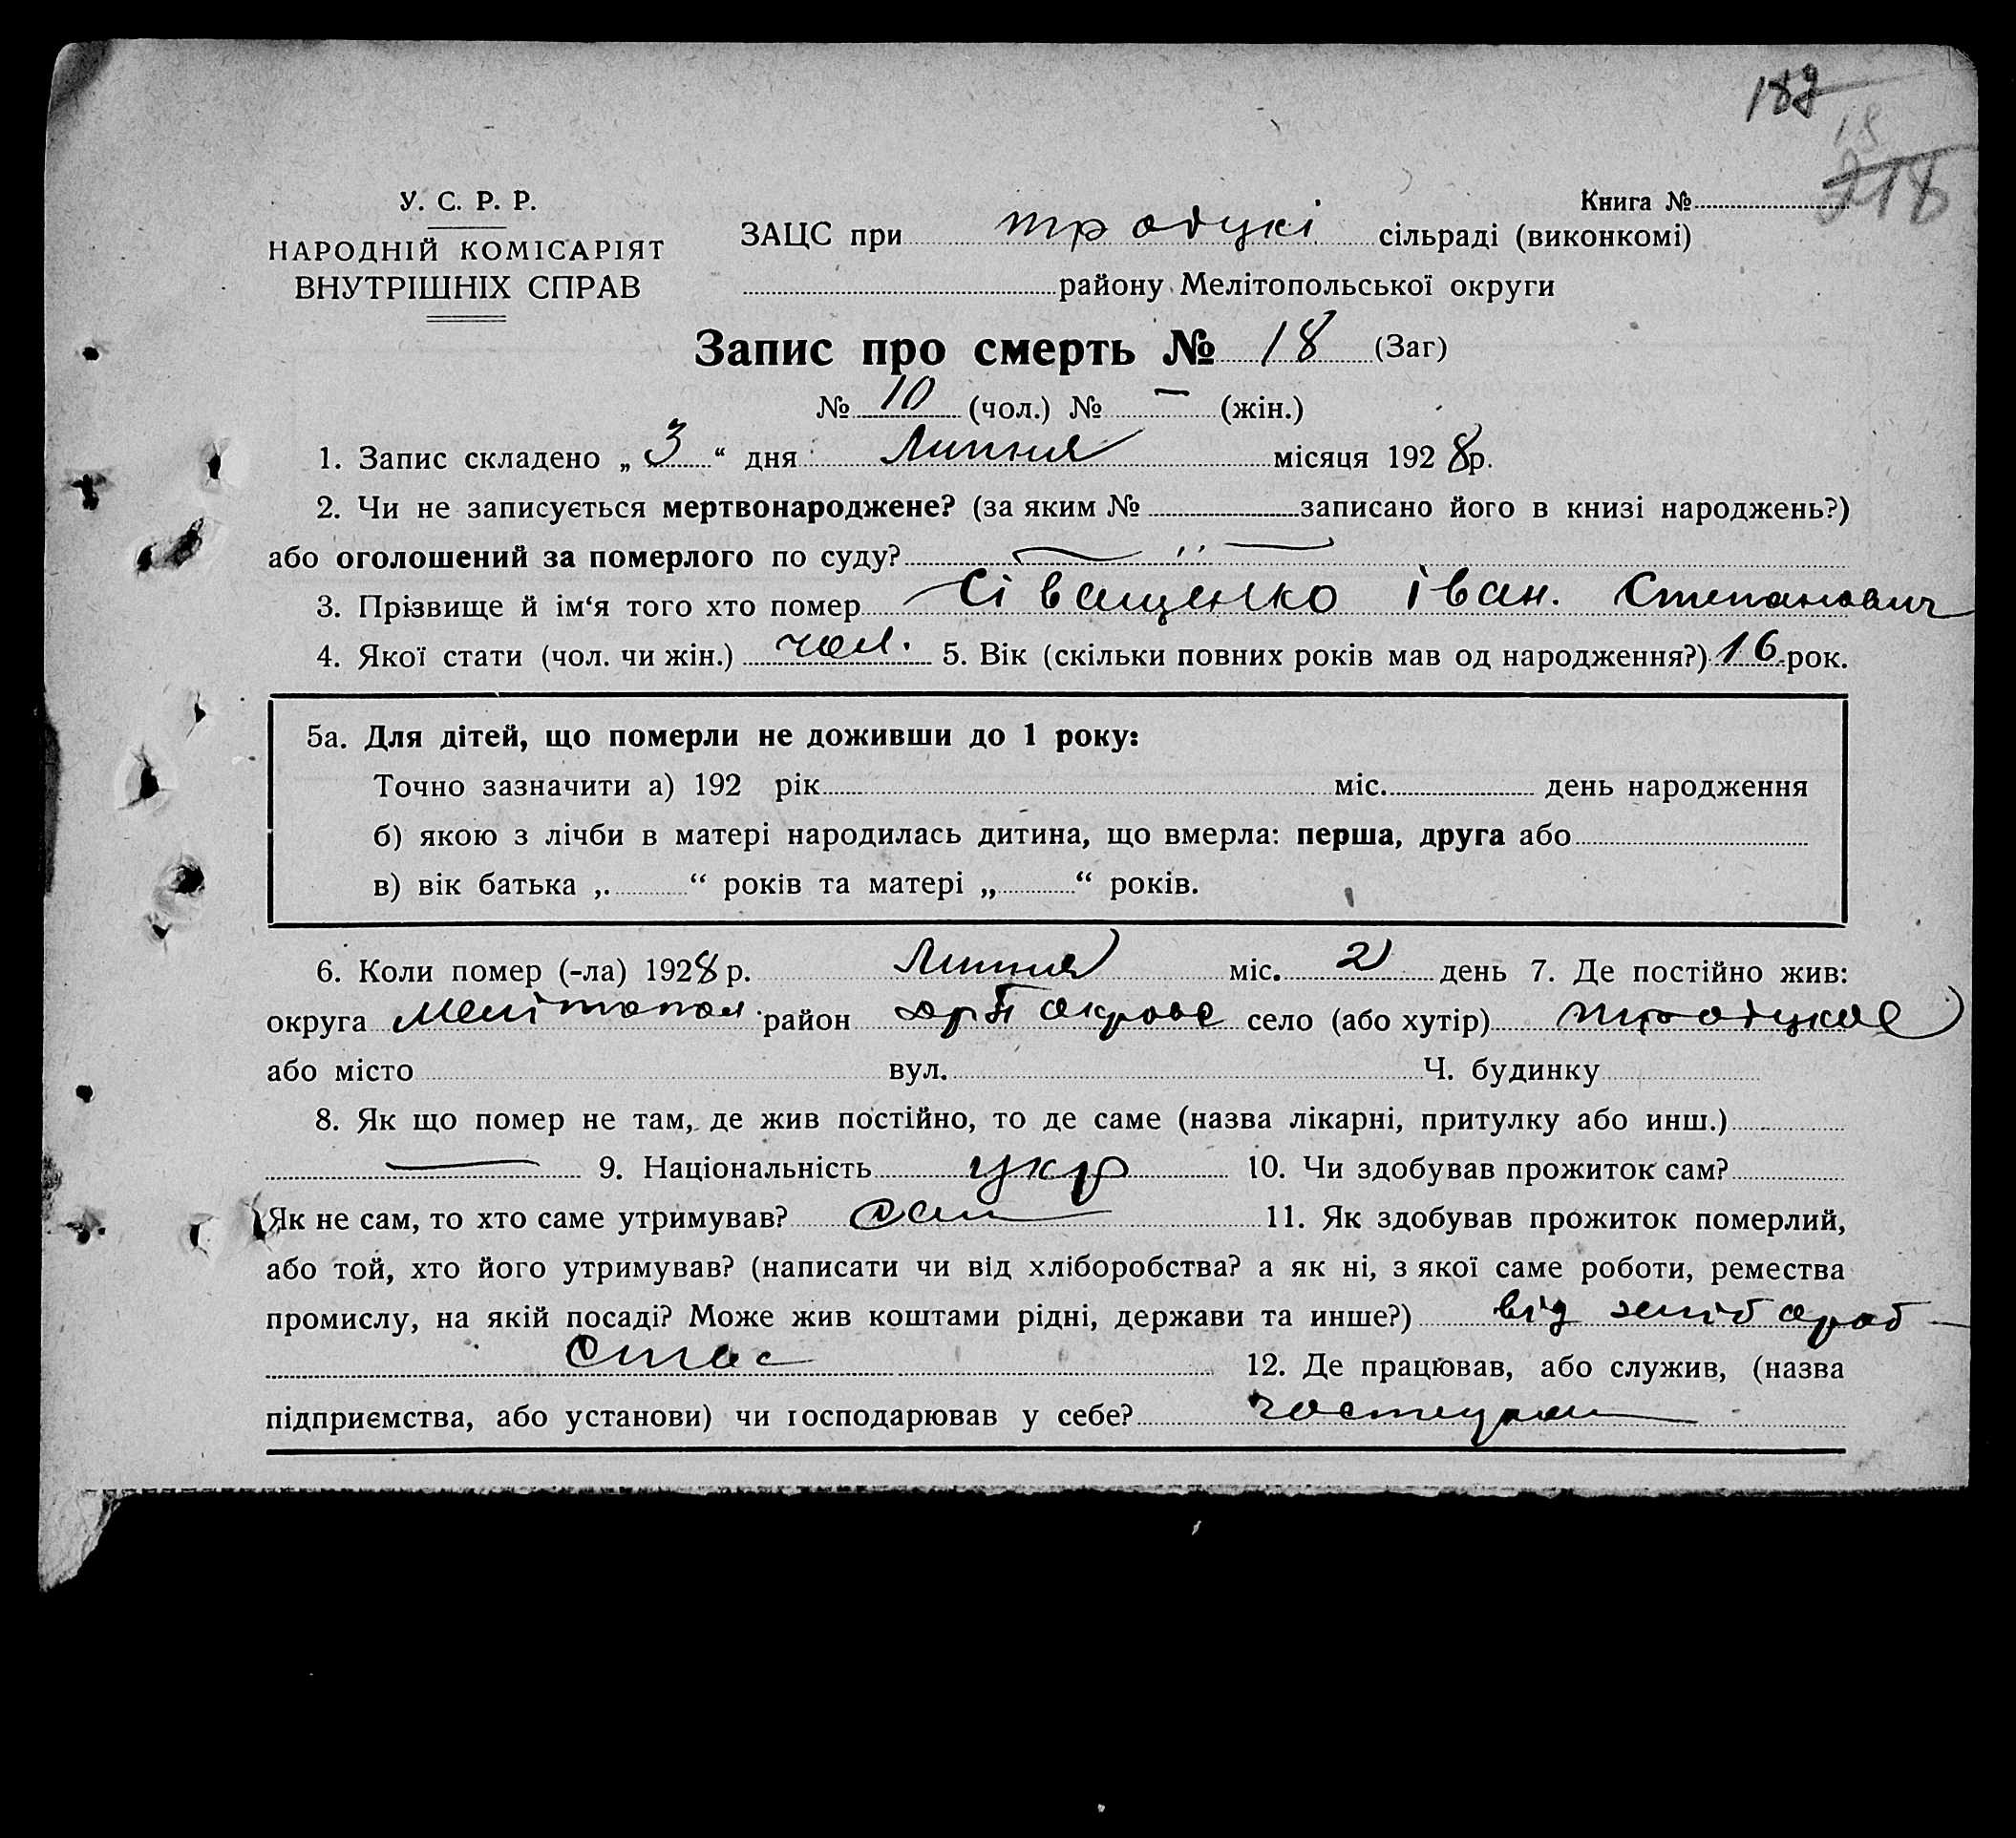 182
18
218
У. С. Р. Р.
НАРОДНІЙ КОМІСАРІЯТ
ВНУТРІШНІХ СПРАВ
Книга №
ЗАЦС при троїцкі сільраді (виконкомі)
району Мелітопольської округи
Запис про смерть № 18 (Заг)
№ 10 (чол.) № – (жін.)
1. Запис складено „ 3 “ дня Липня місяця 192 8 р.
2. Чи не записується мертвонароджене? (за яким № записано його в книзі народжень?)
або оголошений за померлого по суду?
3. Прізвище й ім‘я того хто помер Сіващенко Іван. Степанович
4. Якої стати (чол. чи жін.) чол. 5. Вік (скільки повних років мав од народження?) 16 рок.
5а. Для дітей, що померли не доживши до 1 року:
Точно зазначити а) 192 рік міс. день народження
б) якою з лічби в матері народилась дитина, що вмерла: перша, друга або
в) вік батька „ “ років та матері „ “ років.
6. Коли помер (-ла) 1928 р. Липня міс. 2 день 7. Де постійно жив:
округа Мелітопол район село (або хутір) троїцкое
або місто вул. Ч. будинку
8. Як що помер не там, де жив постійно, то де саме (назва лікарні, притулку або инш.)
— 9. Національність укр 10. Чи здобував прожиток сам?
Як не сам, то хто саме утримував? сам 11. Як здобував прожиток померлий,
або той, хто його утримував? (написати чи від хліборобства? а як ні, з якої саме роботи, ремества
промислу, на якій посаді? Може жив коштами рідні, держави та инше?) від хлібороб-
ства 12. Де працював, або служив, (назва
підприємства, або установи) чи господарював у себе?